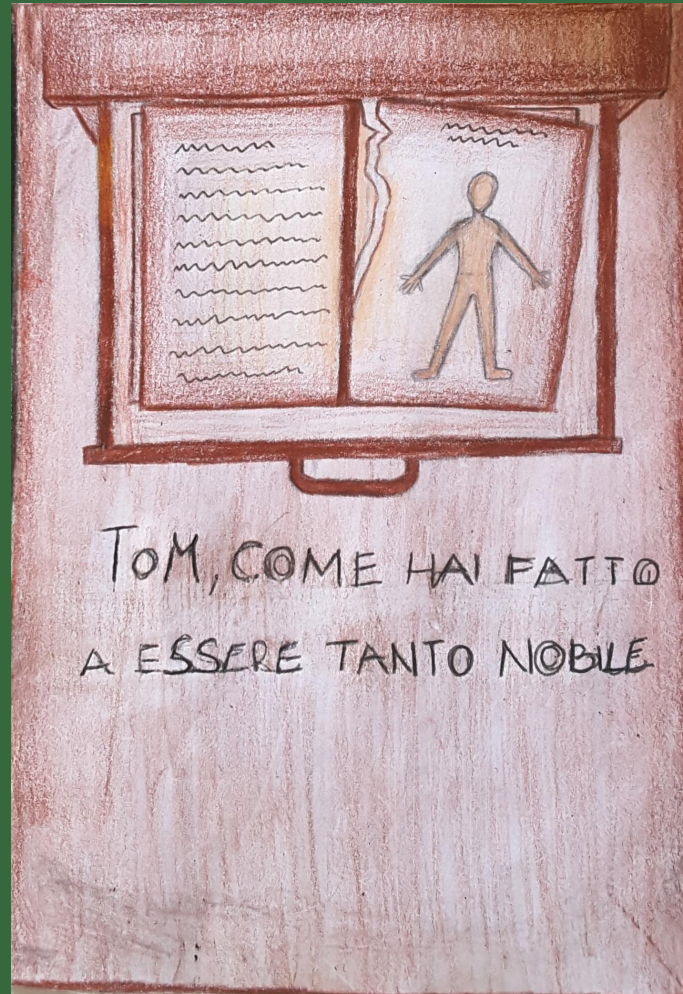 TOM, COME HAI FATTO
A ESSERE TANTO NOBILE